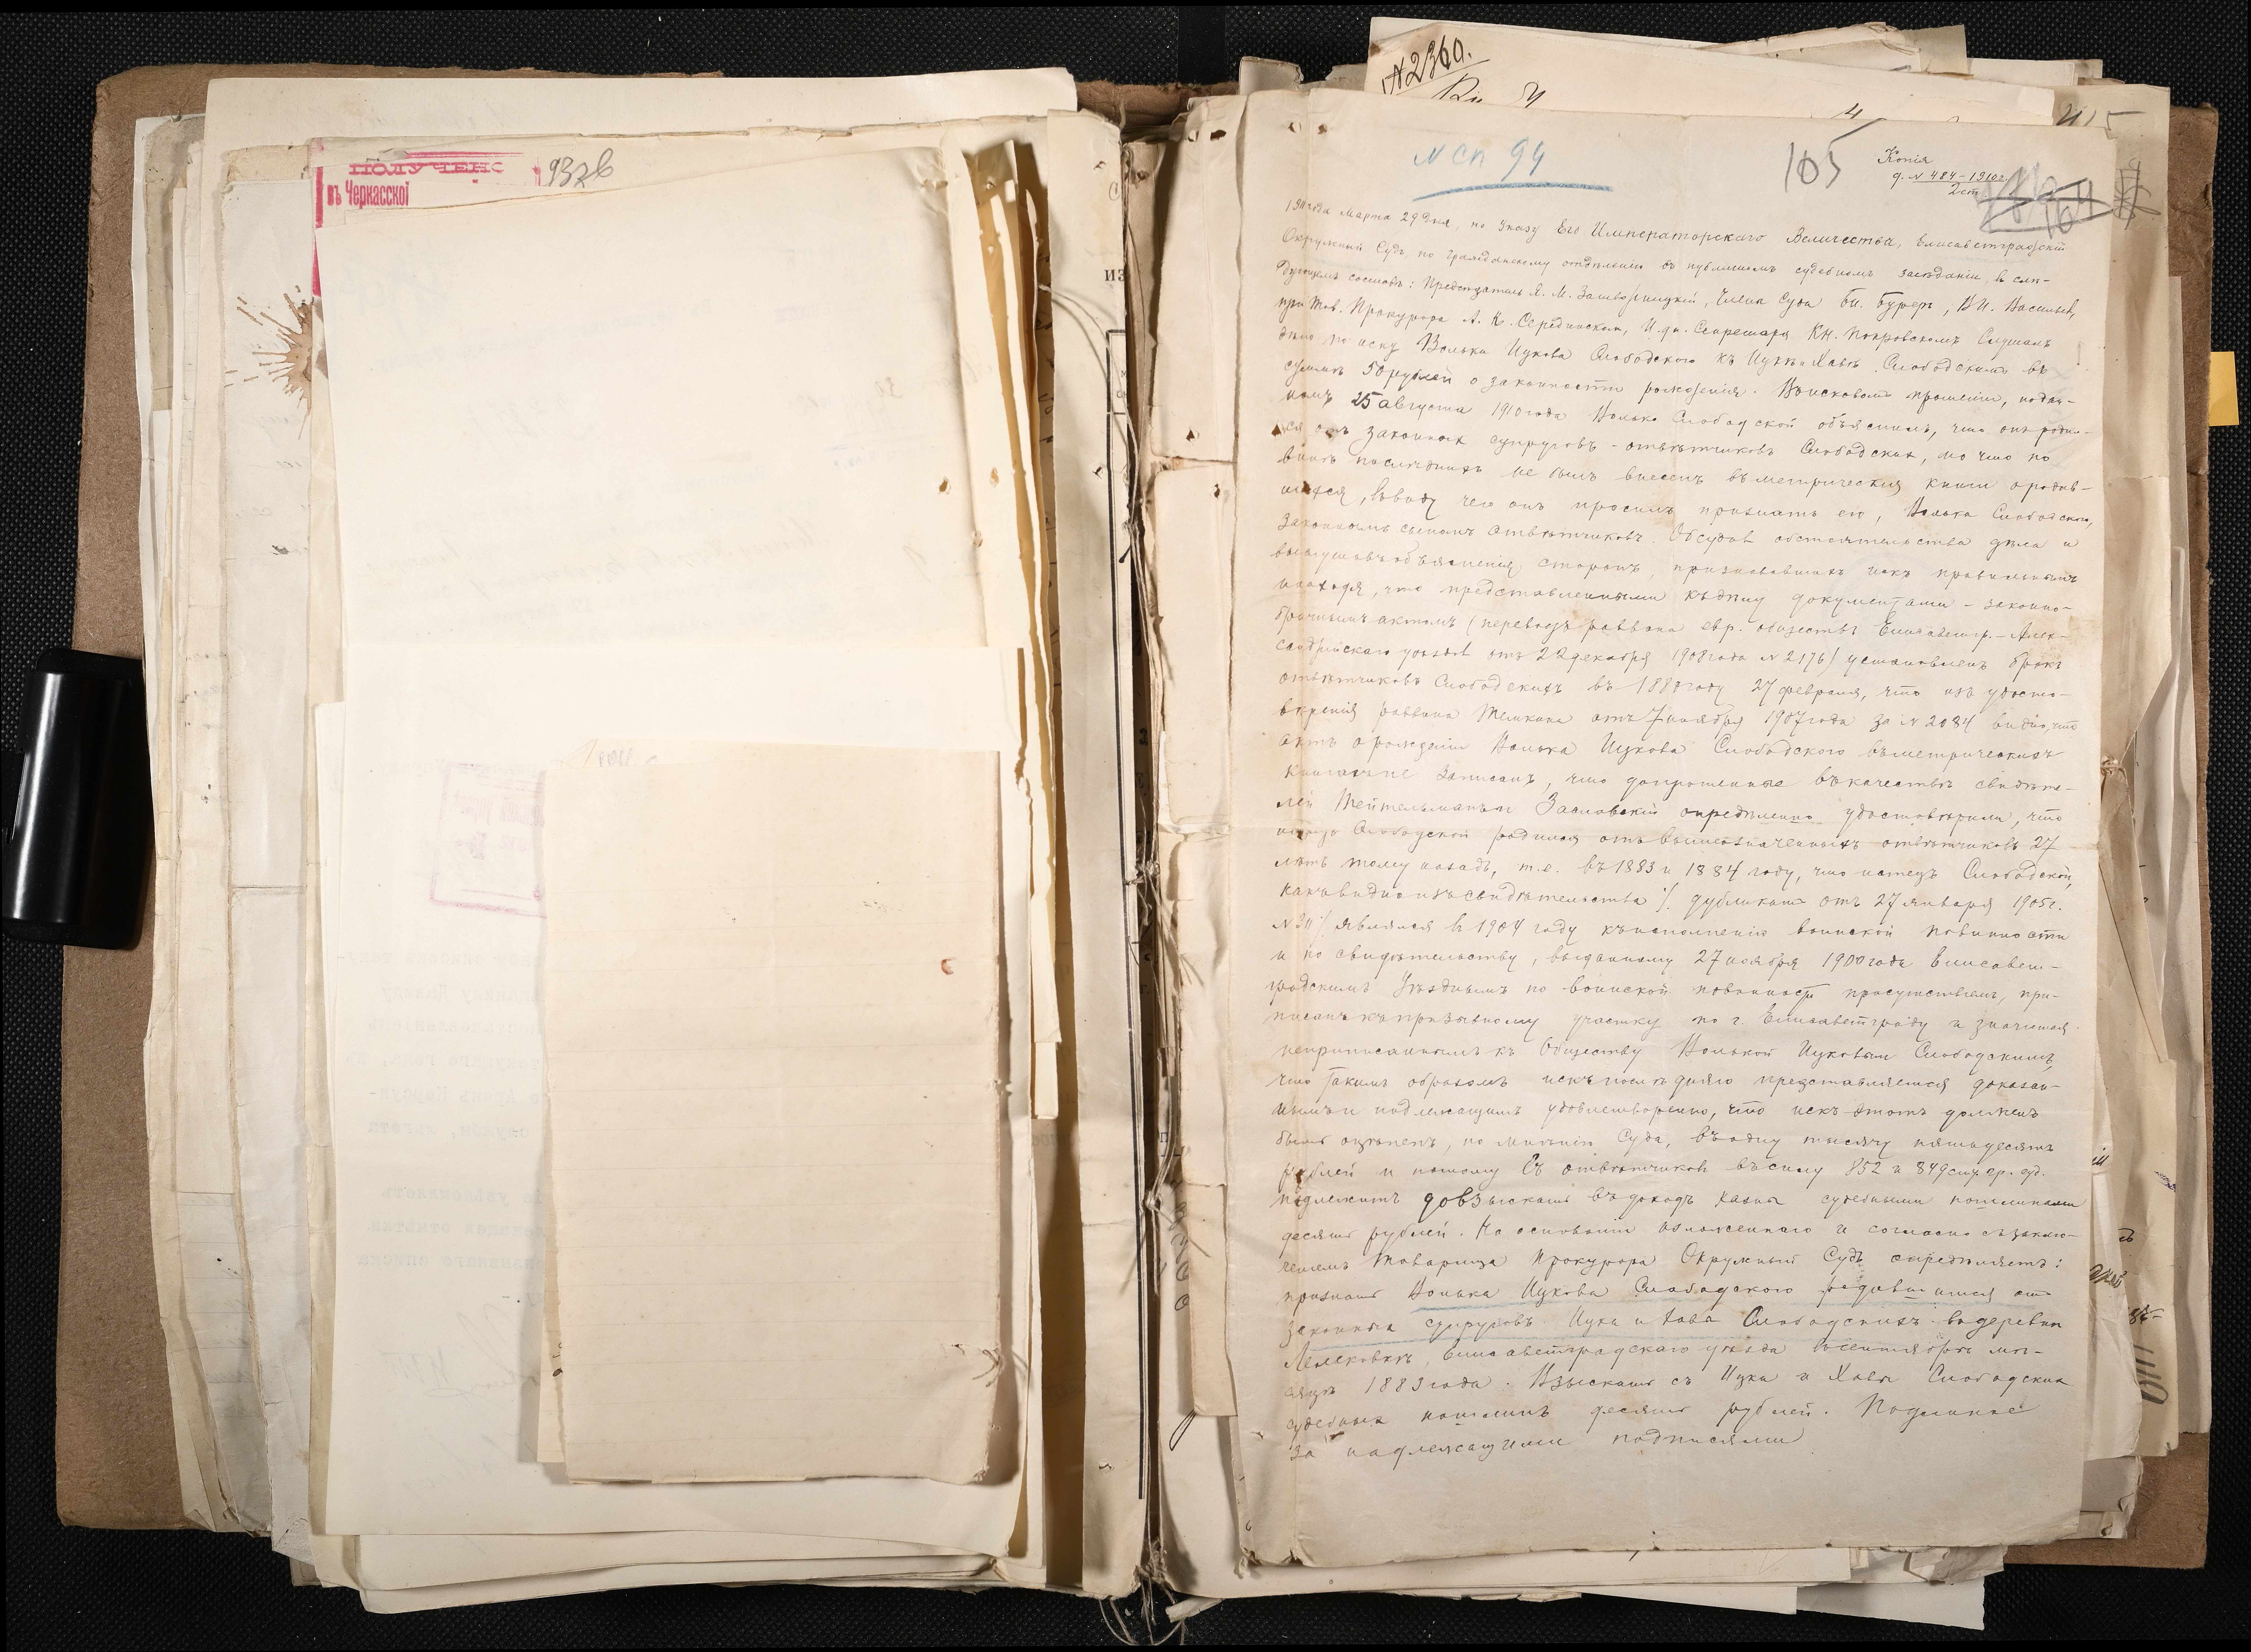 ПОЛУЧЕНО
въ Черкасской
932б
ИЗ
№2360.
N сп 94
105
Копія
д. N 484-1910г.
2 ст
1911 года Марта 29 дня, по Указу Его Императорскаго Величества, Елисаветградскій
Окружный Судъ по гражданскому отдѣленію въ публичномъ судебномъ засѣданіи, въ слѣ-
дующемъ составѣ: Предсѣдатель Я. М. Члены Суда В.И. Васильевъ,
при Тов. Прокурора А. К. Серединскомъ, И.дн. Секретаря Кн. Покровскомъ Слушалъ
дѣло по иску Волька Ицкова Слободского къ Ицкѣ и Хавѣ Слободскимъ въ
суммѣ 50 рублей о законности рожденія. Въ исковомъ прошеніи, подан-
номъ 25 августа 1910 года Волько Слободской объяснилъ, что онъ родил-
ся отъ законныхъ супруговъ - отвѣтчиковъ Слободскихъ, но что по
винѣ послѣднихъ не былъ внесенъ въ метрическія книги о родив-
шихся, въ виду чего онъ просилъ признать его, Волька Слободского,
законнымъ сыномъ отвѣтчиковъ. Обсудивъ обстоятельства дѣла и
выслушавъ объясненія сторонъ, признававшихъ искъ правильнымъ
находя, что представленными къ дѣлу документами - законно-
брачнымъ актомъ (переводъ раввина евр. обществъ Елисаветгр.-Алек-
сандрійскаго уѣздовъ отъ 22 декабря 1908 года N 2176) установленъ бракъ
отвѣтчиковъ Слободскихъ въ 1880 году 27 февраля, что изъ удосто-
вѣренія раввина Темкина отъ 7 ноября 1907 года за N 2084 видно, что
актъ о рожденіи Волька Ицкова Слободского въ метрическихъ
книгахъ не записанъ, что допрошенные въ качествѣ свидѣте-
лей Тейтельманъ и Заславскій опредѣленно удостовѣрили, что
истецъ Слободской родился отъ вышеозначенныхъ отвѣтчиковъ 27
лѣтъ тому назадъ, т.е. въ 1883 и 1884 году, что истецъ Слободской,
какъ видно изъ свидѣтельства /. дубликатъ отъ 27 января 1905г.
N 311 ./ являлся въ 1904 году къ исполненію воинской повинности
и по свидѣтельству, выданному 27 ноября 1900 года Елисавет-
градскимъ Уѣзднымъ по воинской повинности присутствіемъ, при-
писанъ къ призывному участку по г. Елисаветграду и значится
неприписаннымъ къ обществу Волькой Ицковымъ Слободскимъ,
что такимъ образомъ искъ послѣдняго представляется доказан-
нымъ и подлежащимъ удовлетворенію, что искъ этотъ долженъ
быть оцѣненъ, по мнѣнію Суда, въ одну тысячу пятьдесятъ
рублей и потому съ отвѣтчиковъ въ силу 852 и 849 ст. уст. гр. суд.
подлежитъ довзыскать въ доходъ казны судебными пошлинами
десять рублей. На основаніи изложеннаго и согласно съ заклю-
ченіемъ Товарища Прокурора Окружный Судъ опредѣляетъ:
признать Волька Ицкова Слободского родившимся отъ
законныхъ супруговъ Ицки и Хавы Слободскихъ въ деревни
Лелековкѣ, Елисаветградскаго уѣзда въ сентябрѣ мѣ-
сяцѣ 1883 года. Взыскать съ Ицки и Хавы Слободскихъ
судебныхъ пошлинъ десять рублей. Подлинное
за надлежащими подписями